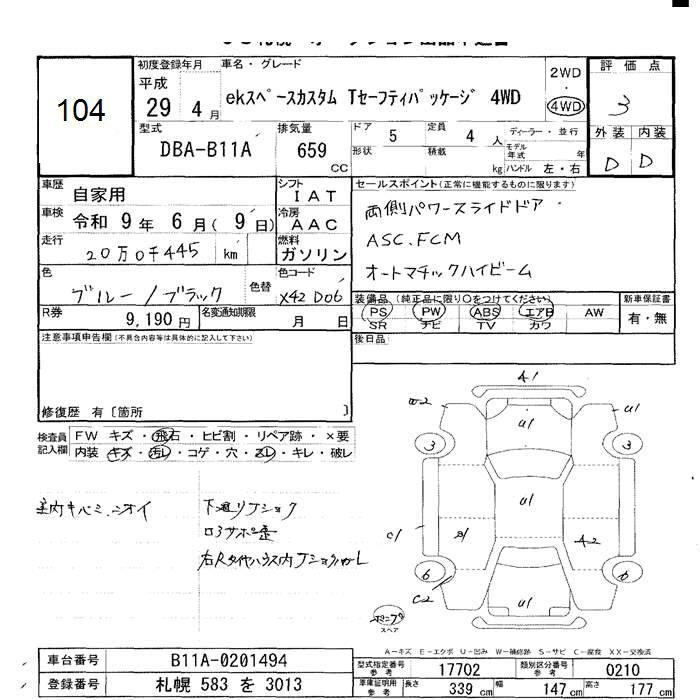 104
初度登録年月
平成
29年 4月
車名・グレード
ekスペースカスタム Tセーフティパッケージ 4WD
2WD
・
4WD
評価点
3
外装 内装
D D
型式
DBA-B11A
排気量
659 CC
ドア 5
定員 4 人
形状
積載 kg
ディーラー・並行
モデル年式 年
ハンドル 左・右
車歴 自家用
シフト IAT
車検 令和 9年 6月( 9日)
冷房 AAC
走行 20万0千445 km
燃料 ガソリン
セールスポイント(正常に機能するものに限ります)
両側パワースライドドア
ASC.FCM
オートマチックハイビーム
色 ブルー/ブラック
色替
色コード X42 D06
装備品 (純正品に限り○をつけてください)
PS PW ABS エアB AW
SR ナビ TV カワ
新車保証書
有・無
R券 9,190円
名変通知期限 月 日
注意事項申告欄(不具合内容等は具体的に記入して下さい)
後日品
修復歴 有〔箇所 〕
検査員記入欄
FW キズ・飛石・ヒビ割・リペア跡・×要
内装 キズ・汚レ・コゲ・穴・スレ・キレ・破レ
室内キバミ.ニオイ
下廻リフショク
A1
U1
U1
3
3
U1
C1
A2
6
6
C2
U1
スペア
A-キズ E-エクボ U-凹み W-補修跡 S-サビ C-腐食 XX-交換済
車台番号 B11A-0201494
登録番号 札幌 583 を 3013
型式指定番号 参考 17702
類別区分番号 参考 0210
車庫証明用 参考 長さ 339 cm 幅 147 cm 高さ 177 cm